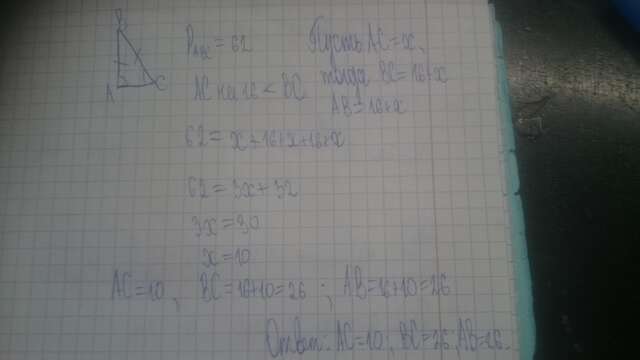 B
A C
P_ABC = 62 Пусть AC = x,
AC на 16 < BC тогда BC = 16+x
AB = 16+x
62 = x+16+x+16+x
62 = 3x+32
3x = 30
x = 10
AC = 10, BC = 16+10 = 26; AB = 16+10 = 26
Ответ: AC = 10; BC = 26, AB = 26.